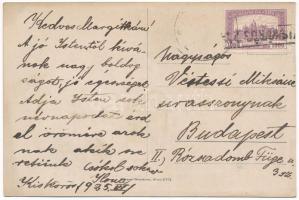 Kedves Margitkám!
A jó Istentől kívá-
nok nagy boldog
ságot, jó egészséget
Adja Isten sok
névnapodat érd
el örömére azok
nak akik sze-
retünk Csókol sokszor
Ilona
Kiskőrös, 935. VII/
Nagyságos
Miksáné
úrasszonynak
Budapest
II, Rózsadomb Füge u
3 sz.